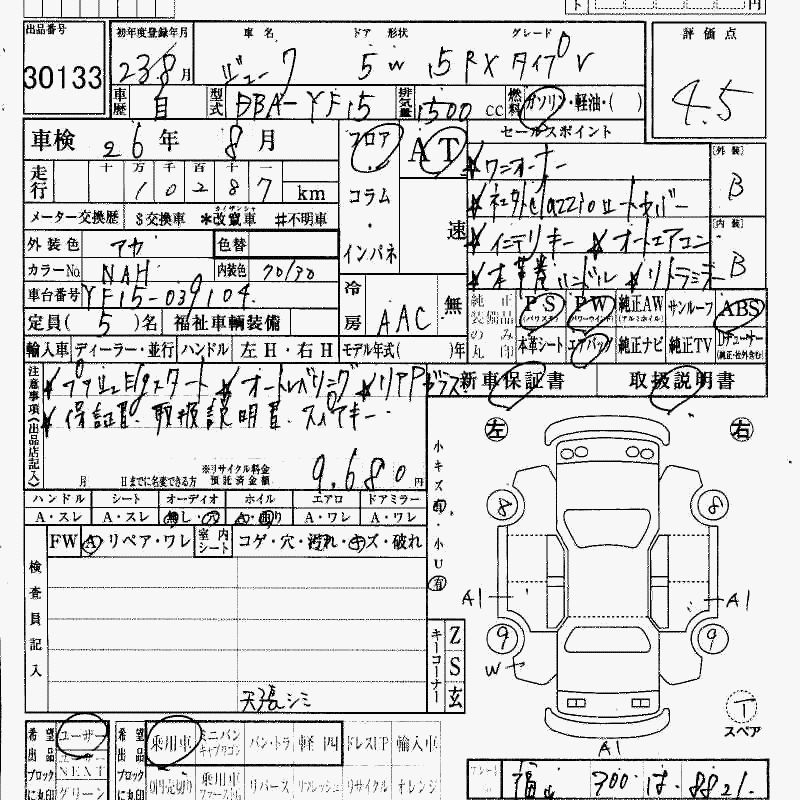 出品番号 初年度登録年月 車名 ドア 形状 グレード 評価点
30133 23 8月 ジューク 5W 15RX タイプV 4.5
車歴 自 型式 DBA-YF15 排気量 1500cc 燃料 ガソリン・軽油・( )
車検 26年 8月 フロア AT セールスポイント
走行 十 万 千 百 十 一 ★ワンオーナー 外装 B
10287 km コラム
メーター交換歴 $交換車 *改竄車 #不明車 速
外装色 アカ 色替 インパネ ★インテリキー ★オートエアコン 内装 B
カラーNo. NAH 内装色 70/30 ★本革巻ハンドル
車台番号 YF15-039104 冷房 AAC 無 純正装備品のみ丸印 PS (パワステ) PW (パワーウインド) 純正AW (アルミホイル) サンルーフ ABS
定員( 5 )名 福祉車輌装備 本革シート エアバック 純正ナビ 純正TV
輸入車 ディーラー・並行 ハンドル 左H・右H モデル年式( )年
注意事項(出品店記入) ★オートレベリング 新車保証書 取扱説明書
★保証書、取扱説明書、スペアキー
月 日までに名変できる方 ※リサイクル料金預託済金額 9,680円
左 右
ハンドル シート オーディオ ホイル エアロ ドアミラー
A・スレ A・スレ 無し・穴 A・曲り A・ワレ A・ワレ
FW A リペア・ワレ 室内シート コゲ・穴・汚れ・キズ・破れ
小キズ 有・小U 有
検査員記入
8 8
A1 A1
9 9
W
キーコーナー Z S 玄
天張シミ
T スペア
A1
希望出品ブロックに丸印 ユーザー 乗用車 ミニバン バン・トラ 軽四 ドレスUP 輸入車
NEXT グリーン 0円売切り 乗用車 リバース リフレッシュ リサイクル オレンジ
福山 700 は 8821